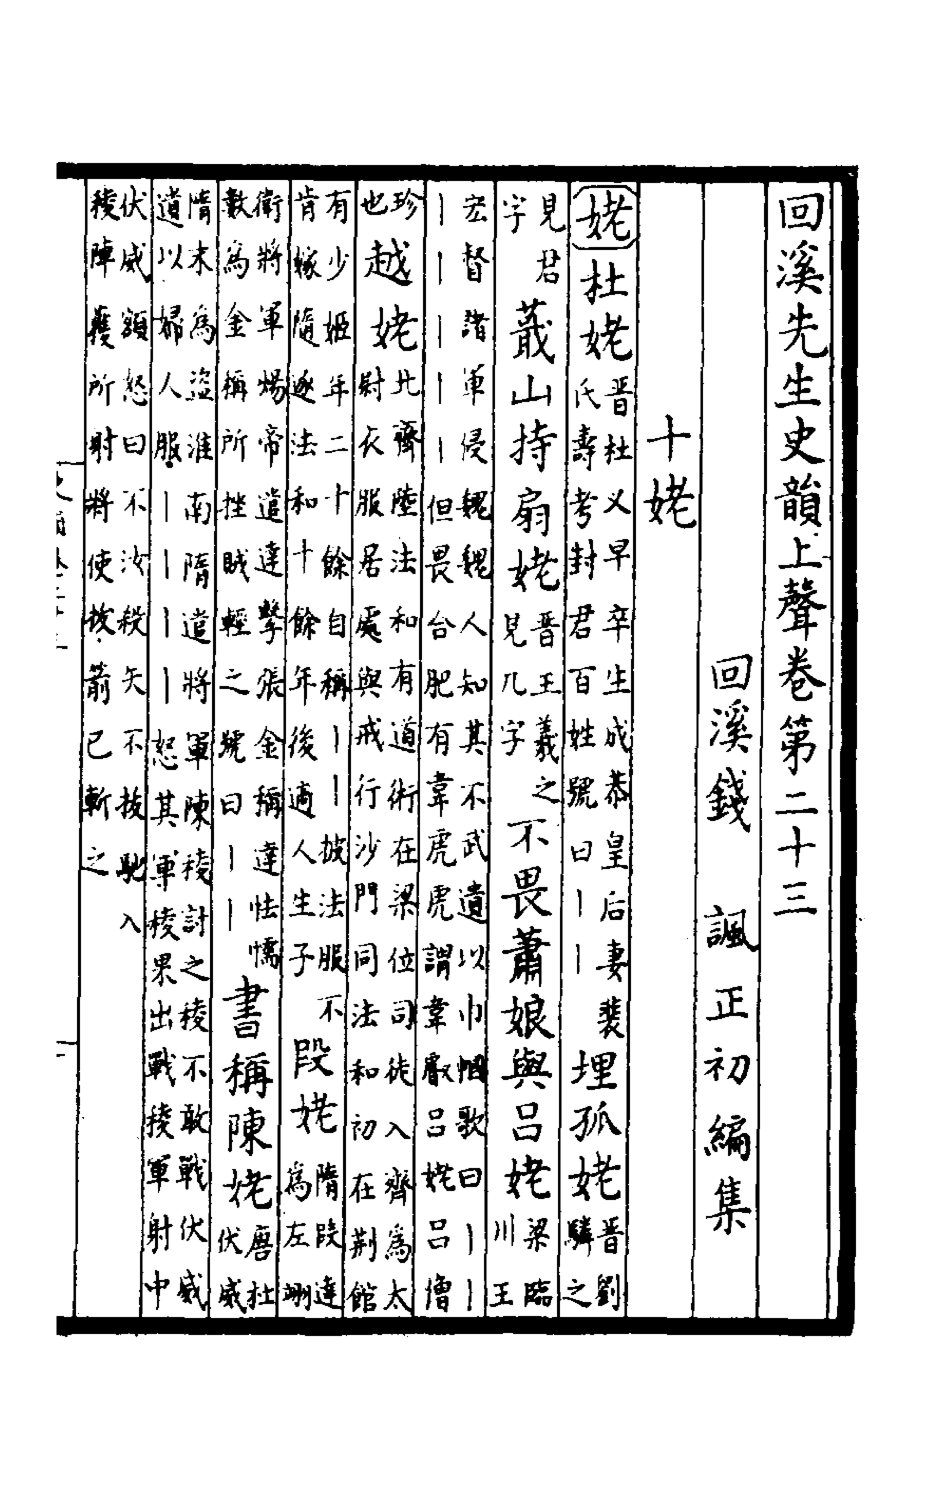 回溪先生史韻上聲卷第二十三
回溪錢 諷正初編集
十姥
姥 杜姥 晉杜乂早卒生成恭皇后妻裴氏壽考封君百姓號曰丨丨 埋孤姥 晉劉驎之
見君字 蕺山持扇姥 晉王羲之見几字 不畏蕭娘與呂姥 梁臨川王
宏督諸軍侵魏魏人知其不武遺以巾幗歌曰丨丨
丨丨丨丨丨但畏合肥有韋虎虎謂韋叡呂姥呂僧
珍也 越姥 北齊陸法和有道術在梁位司徒入齊為太尉衣服居處與戒行沙門同法和初在荆館
有少姬年二十餘自稱丨丨披法服不肯嫁隨逐法和十餘年後適人生子 段姥 隋段達為左翊
衛將軍煬帝遣達擊張金稱達怯懦數為金稱所挫賊輕之號曰丨丨 書稱陳姥 唐杜伏威
隋末為盜淮南隋遣將軍陳稜討之稜不敢戰伏威
道以婦人服丨丨丨丨怒其軍稜果出戰稜軍射中
伏威額怒曰不汝殺矢不拔馳入
稜陣獲所射將使拔箭已斬之